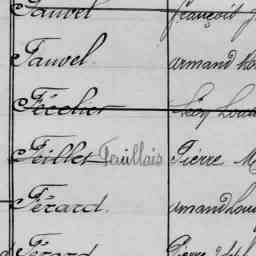 Fauvel François J
Fauvel. Armand
Fécelier Léon Loui
Feillet Feuillais Pierre M
Férard. Armand Louis
Férard Pierre